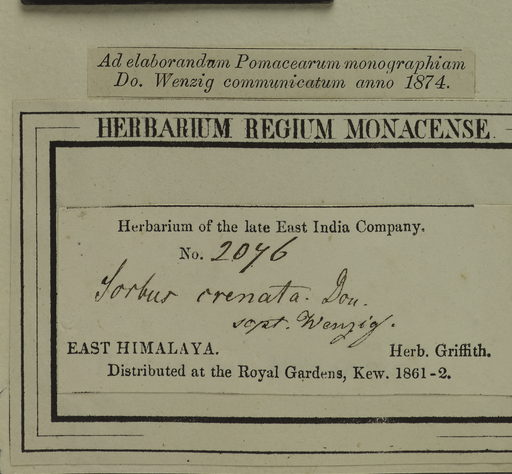 Ad elaborandum Pomacearum monographiam
Do. Wenzig communicatum anno 1874.
HERBARIUM REGIUM MONACENSE
Herbarium of the late East India Company.
No. 2076
Sorbus crenata. Don.
Wenzig.
EAST HIMALAYA. Herb. Griffith.
Distributed at the Royal Gardens, Kew. 1861-2.